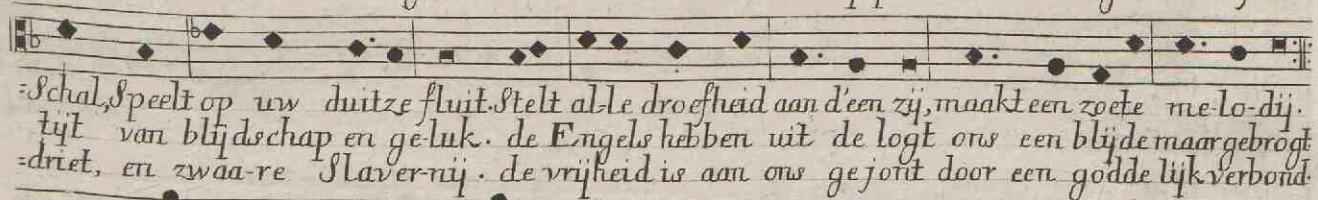 =Schal, Speelt op uw duitze fluit. Stelt al-le droefheid aan d'een zij, maakt een zoete me-lo-dij.
tijt van blijdschap en ge-luk. de Engels hebben uit de logt ons een blijde maar gebrogt
=driet, en zwaa-re Slaver-nij. de vrijheid is aan ons gejont door een godde lijk verbond.